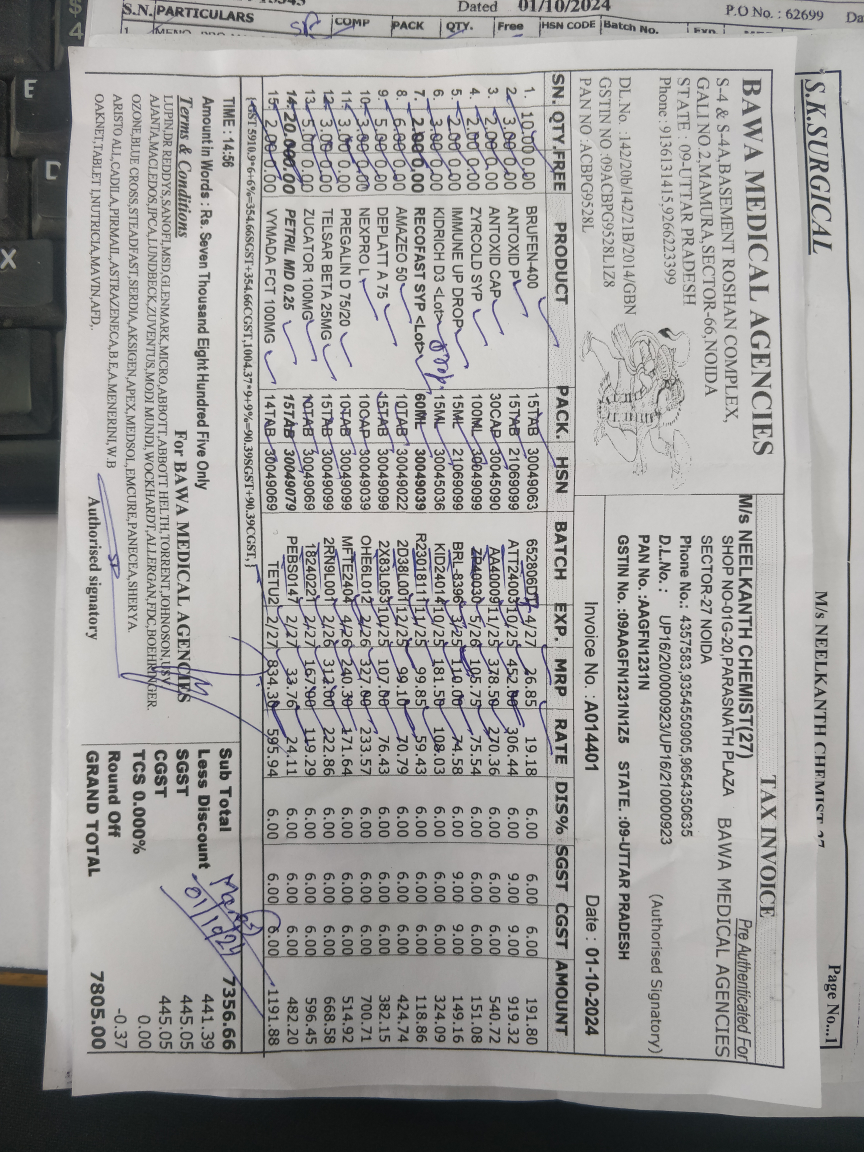 S.N. PARTICULARS COMP PACK QTY. Free HSN CODE Batch No.
Dated 01/10/2024
P.O No. : 62699
S.K.SURGICAL
M/s NEELKANTH CHEMIST 27
Page No...1
BAWA MEDICAL AGENCIES
S-4 & S-4A,BASEMENT ROSHAN COMPLEX,
GALI NO 2,MAMURA,SECTOR-66,NOIDA
STATE : 09-UTTAR PRADESH
Phone : 9136131415,9266223399
DL.No. :142/20b/142/21B/2014/GBN
GSTIN NO :09ACBPG9528L1Z8
PAN NO :ACBPG9528L
TAX INVOICE
Pre Authenticated For
M/s NEELKANTH CHEMIST(27)
SHOP NO-01G-20,PARASNATH PLAZA BAWA MEDICAL AGENCIES
SECTOR-27 NOIDA
Phone No.: 4357583,9354550905,9654350635
D.L.No. : UP16/20/0000923/UP16/210000923
(Authorised Signatory)
PAN No. :AAGFN1231N
GSTIN No. :09AAGFN1231N1Z5 STATE. :09-UTTAR PRADESH
Invoice No. : A014401 Date : 01-10-2024
SN. QTY. FREE PRODUCT PACK. HSN BATCH EXP. MRP RATE DIS% SGST CGST AMOUNT
1. 10.00 0.00 BRUFEN-400 15TAB 30049063 652806D 4/27 26.85 19.18 6.00 6.00 6.00 191.80
2. 3.00 0.00 ANTOXID P 15TAB 21069099 ATT24003 10/25 452.00 306.44 6.00 9.00 9.00 919.32
3. 2.00 0.00 ANTOXID CAP 30CAP 30045090 AA40009 11/25 378.50 270.36 6.00 6.00 6.00 540.72
4. 2.00 0.00 ZYRCOLD SYP 100ML 30049099 5/26 105.75 75.54 6.00 6.00 6.00 151.08
5. 2.00 0.00 IMMUNE UP DROP 15ML 21069099 BRL-8396 3/26 110.00 74.58 6.00 9.00 9.00 149.16
6. 3.00 0.00 KIDRICH D3 <Lot> 15ML 30045036 KID24014 10/25 181.50 108.03 6.00 6.00 6.00 324.09
7. 2.00 0.00 RECOFAST SYP <Lot> 60ML 30049039 R2301811 11/25 99.85 59.43 6.00 6.00 6.00 118.86
8. 6.00 0.00 AMAZEO 50 10TAB 30049022 2D38L001 12/25 99.10 70.79 6.00 6.00 6.00 424.74
9. 5.00 0.00 DEPLATT A 75 15TAB 30049099 2X83L053 10/25 107.00 76.43 6.00 6.00 6.00 382.15
10. 3.00 0.00 NEXPRO L 10CAP 30049039 OHE6L012 2/26 327.00 233.57 6.00 6.00 6.00 700.71
11. 3.00 0.00 PREGALIN D 75/20 10TAB 30049099 MFTE2404 4/26 240.30 171.64 6.00 6.00 6.00 514.92
12. 3.00 0.00 TELSAR BETA 25MG 15TAB 30049099 2RN9L001 2/26 312.00 222.86 6.00 6.00 6.00 668.58
13. 5.00 0.00 ZUCATOR 100MG 10TAB 30049069 18240221 2/27 167.00 119.29 6.00 6.00 6.00 596.45
14. 20.00 0.00 PETRIL MD 0.25 15TAB 30049079 PEBS0147 2/27 33.76 24.11 6.00 6.00 6.00 482.20
15. 2.00 0.00 VYMADA FCT 100MG 14TAB 30049069 TETU2 2/27 834.30 595.94 6.00 6.00 6.00 1191.88
GST 5910.9*6+6%=354.66SGST+354.66CGST,1004.37*9+9%=90.39SGST+90.39CGST,
TIME : 14:56
Amount in Words : Rs. Seven Thousand Eight Hundred Five Only
Terms & Conditions
For BAWA MEDICAL AGENCIES
LUPIN,DR REDDYS,SANOFI,MSD,GLENMARK,MICRO,ABBOTT,ABBOTT HELTH,TORRENT,JOHNSON,USV
AJANTA,MACLEDOS,IPCA,LUNDBECK,ZUVENTUS,MODI MUNDI,WOCKHARDT,ALLERGAN,FDC,BOEHRINGER.
OZONE,BLUE CROSS,STEADFAST,SERDIA,AKSIGEN,APEX,MEDSOL,EMCURE,PANECEA,SHERYA.
ARISTO ALL,CADILA,PIRMAIL,ASTRAZENECA,B.E,A.MENERINI,W.B
OAKNET,TABLET I,NUTRICIA,MAVIN,AFD,
Authorised signatory
Sub Total 7356.66
Less Discount 441.39
SGST 445.05
CGST 445.05
TCS 0.000% 0.00
Round Off -0.37
GRAND TOTAL 7805.00
01/10/24